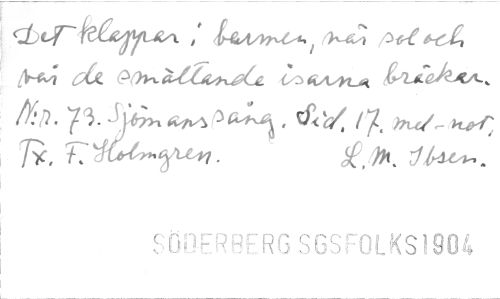 Det klappar i barmen, när sol och
vår de smältande isarna bräcker.
N:r. 73. Sjömanssång. Sid. 17. mel-not.
Tx. F. Holmgren. L. M. Ibsen.
SÖDERBERG SGSFOLKS 1904